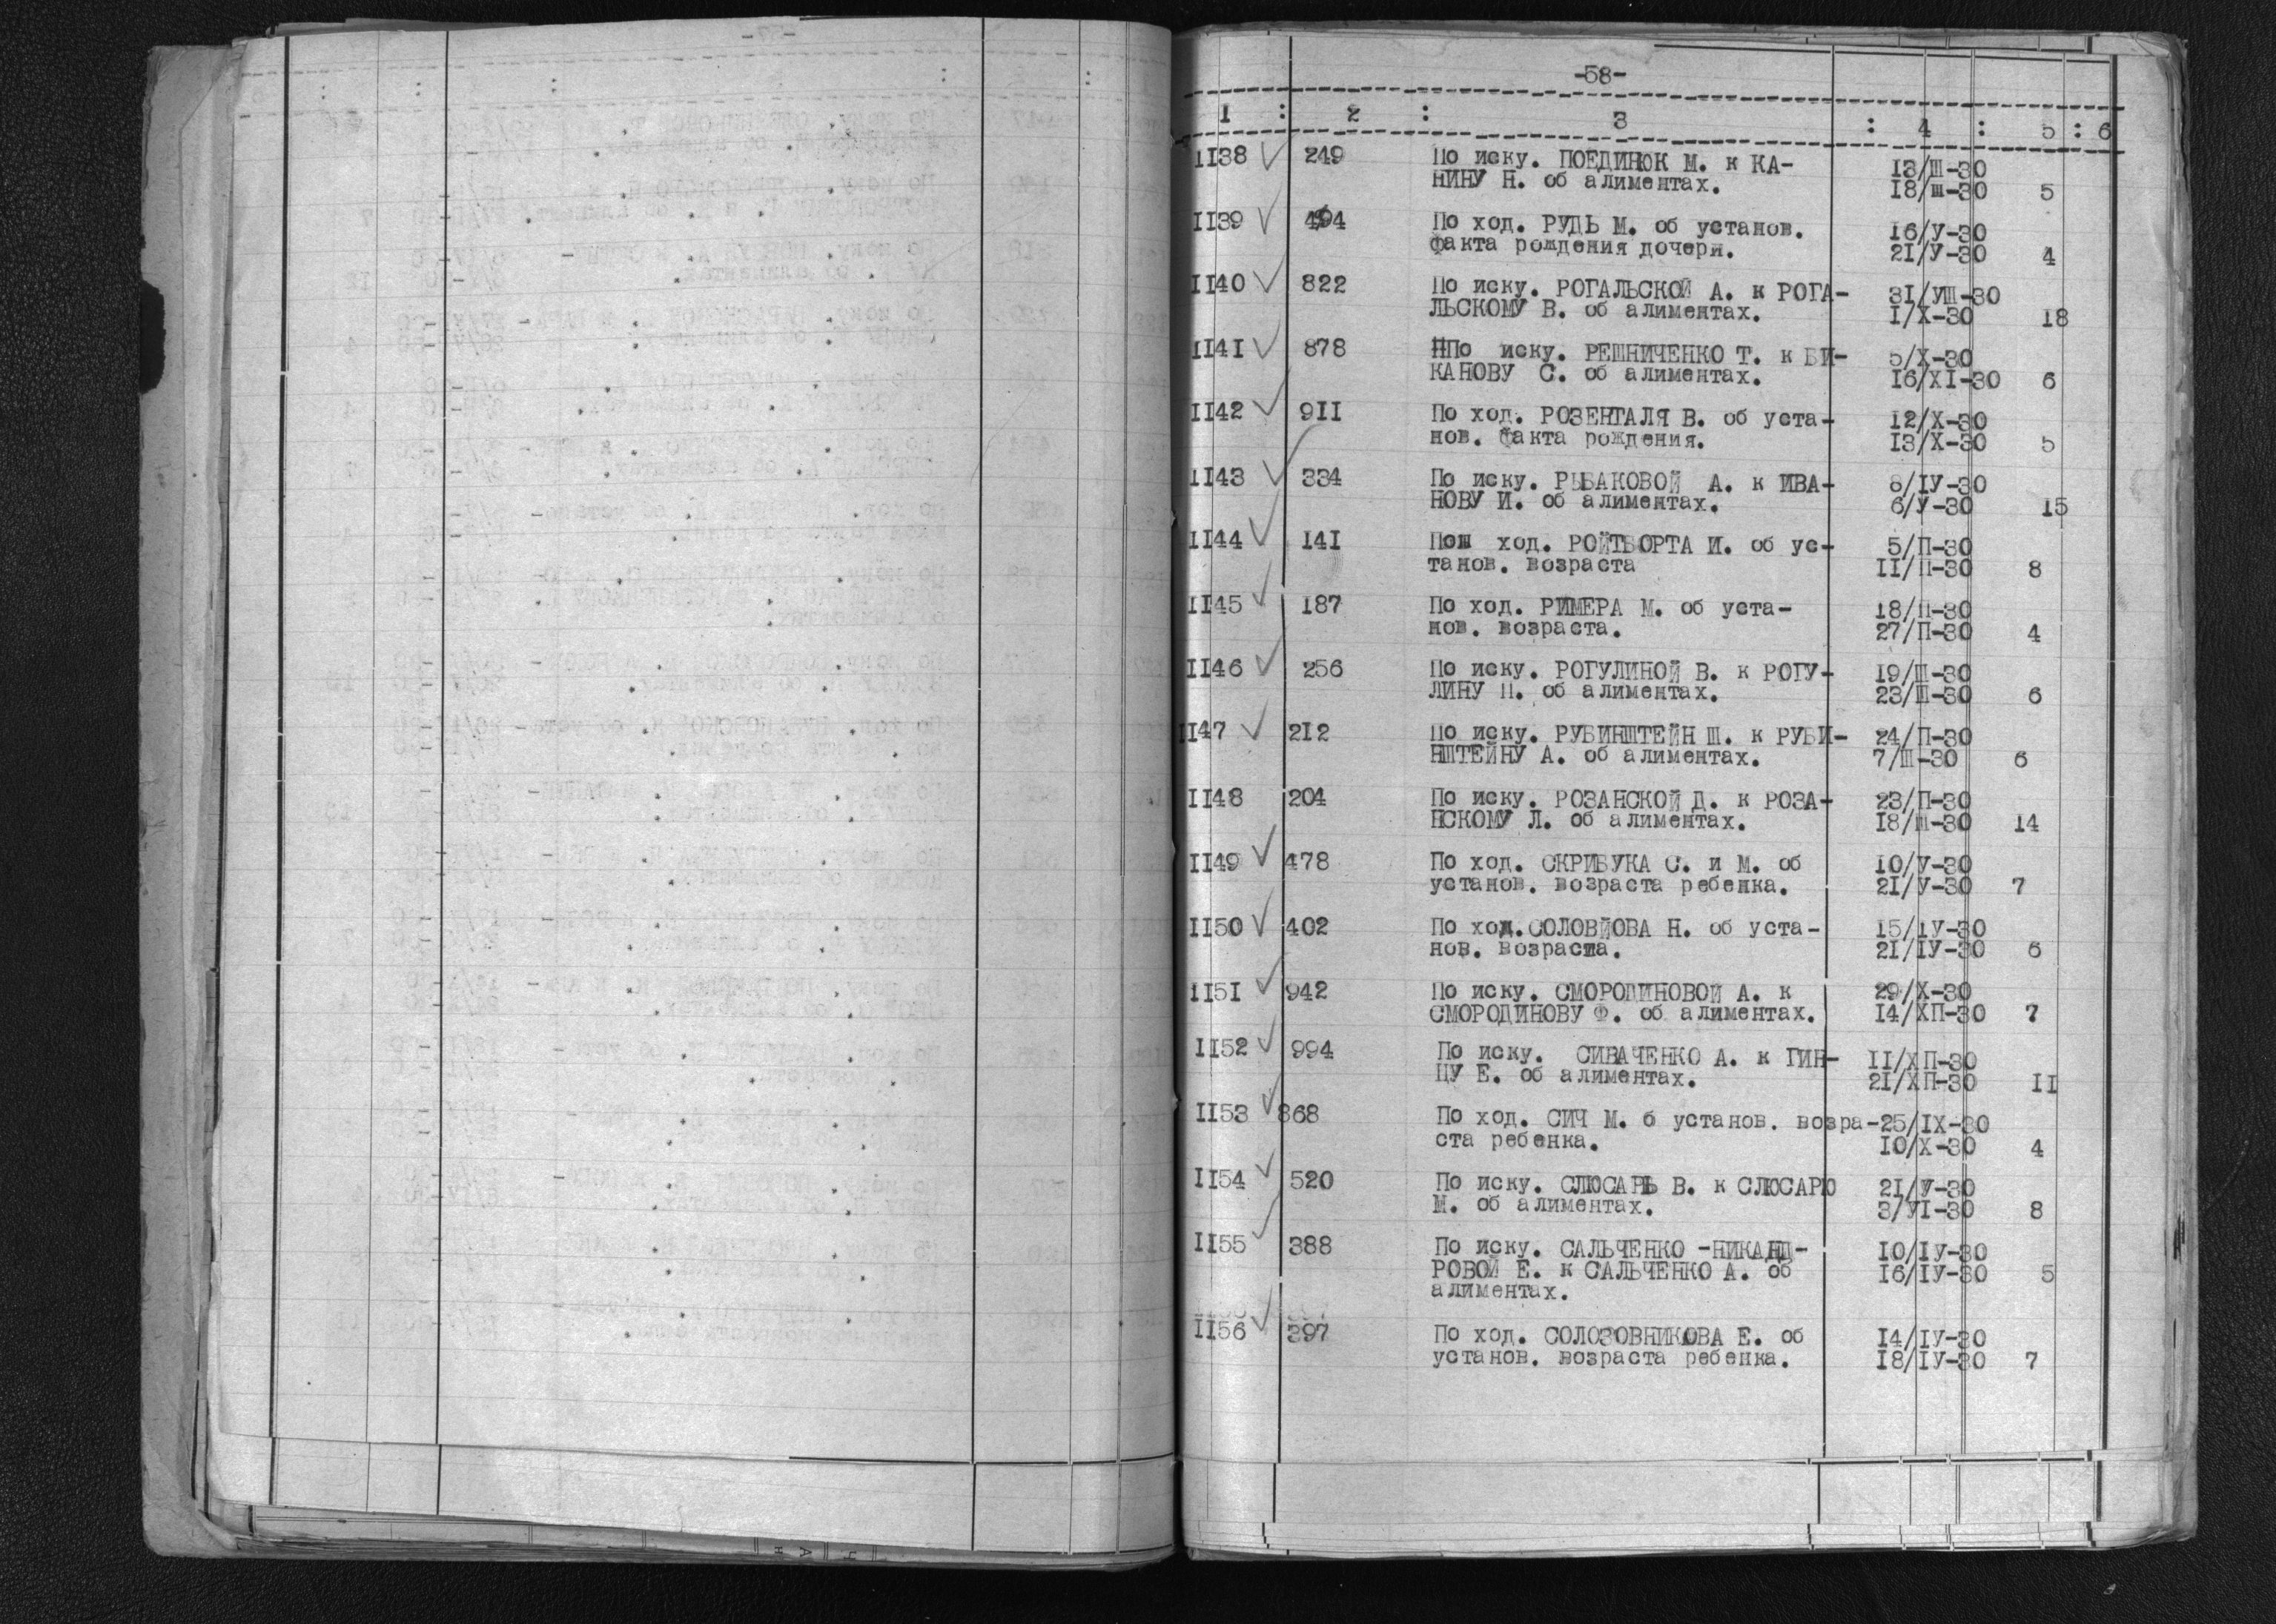 -58-
1 : 2 : 3 : 4 : 5 : 6
II38 249 По иску. ПОЕДИНОК М. к КА- 13/Ш-30
НИНУ Н. об алиментах. 18/Ш-30 5
II39 494 По ход. РУДЬ М. об установ. 16/У-30
факта рождения дочери. 2I/У-30 4
II40 822 По иску. РОГАЛЬСКОЙ А. к РОГА- 3I/УШ-30
ЛЬСКОМУ В. об алиментах. I/Х-30 18
II4I 878 По иску. РЕШНИЧЕНКО Т. к БИ- 5/Х-30
КАНОВУ С. об алиментах. I6/ХI-30 6
II42 9II По ход. РОЗЕНТАЛЯ В. об уста- I2/Х-30
нов. факта рождения. I3/Х-30 5
II43 334 По иску. РЫБАКОВОЙ А. к ИВА- 8/IУ-30
НОВУ И. об алиментах. 6/У-30 I5
II44 I4I Пош ход. РОЙТБОРТА И. об ус- 5/П-30
танов. возраста II/П-30 8
II45 I87 По ход. РИМЕРА М. об уста- I8/П-30
нов. возраста. 27/П-30 4
II46 256 По иску. РОГУЛИНОЙ В. к РОГУ- I9/Ш-30
ЛИНУ П. об алиментах. 23/Ш-30 6
II47 2I2 По иску. РУБИНШТЕЙН Ш. к РУБИ- 24/П-30
НШТЕЙНУ А. об алиментах. 7/Ш-30 6
II48 204 По иску. РОЗАНСКОЙ Д. к РОЗА- 23/П-30
НСКОМУ Л. об алиментах. I8/Ш-30 I4
II49 478 По ход. СКРИБУКА С. и М. об I0/У-30
установ. возраста ребенка. 2I/У-30 7
II50 402 По ход. СОЛОВЙОВА Н. об уста- I5/IУ-30
нов. возраста. 2I/IУ-30 6
II5I 942 По иску. СМОРОДИНОВОЙ А. к 29/Х-30
СМОРОДИНОВУ Ф. об алиментах. I4/ХП-30 7
II52 994 По иску. СИВАЧЕНКО А. к ГИН- II/ХП-30
ЦУ Е. об алиментах. 2I/ХП-30 II
II53 868 По ход. СИЧ М. б установ. возра- 25/IХ-30
ста ребенка. I0/Х-30 4
II54 520 По иску. СЛЮСАРЬ В. к СЛЮСАРЮ 2I/У-30
М. об алиментах. 3/УI-30 8
II55 388 По иску. САЛЬЧЕНКО -НИКАНД- I0/IУ-30
РОВОЙ Е. к САЛЬЧЕНКО А. об I6/IУ-30 5
алиментах.
II56 397 По ход. СОЛОЗОВНИКОВА Е. об I4/IУ-30
установ. возраста ребенка. I8/IУ-30 7